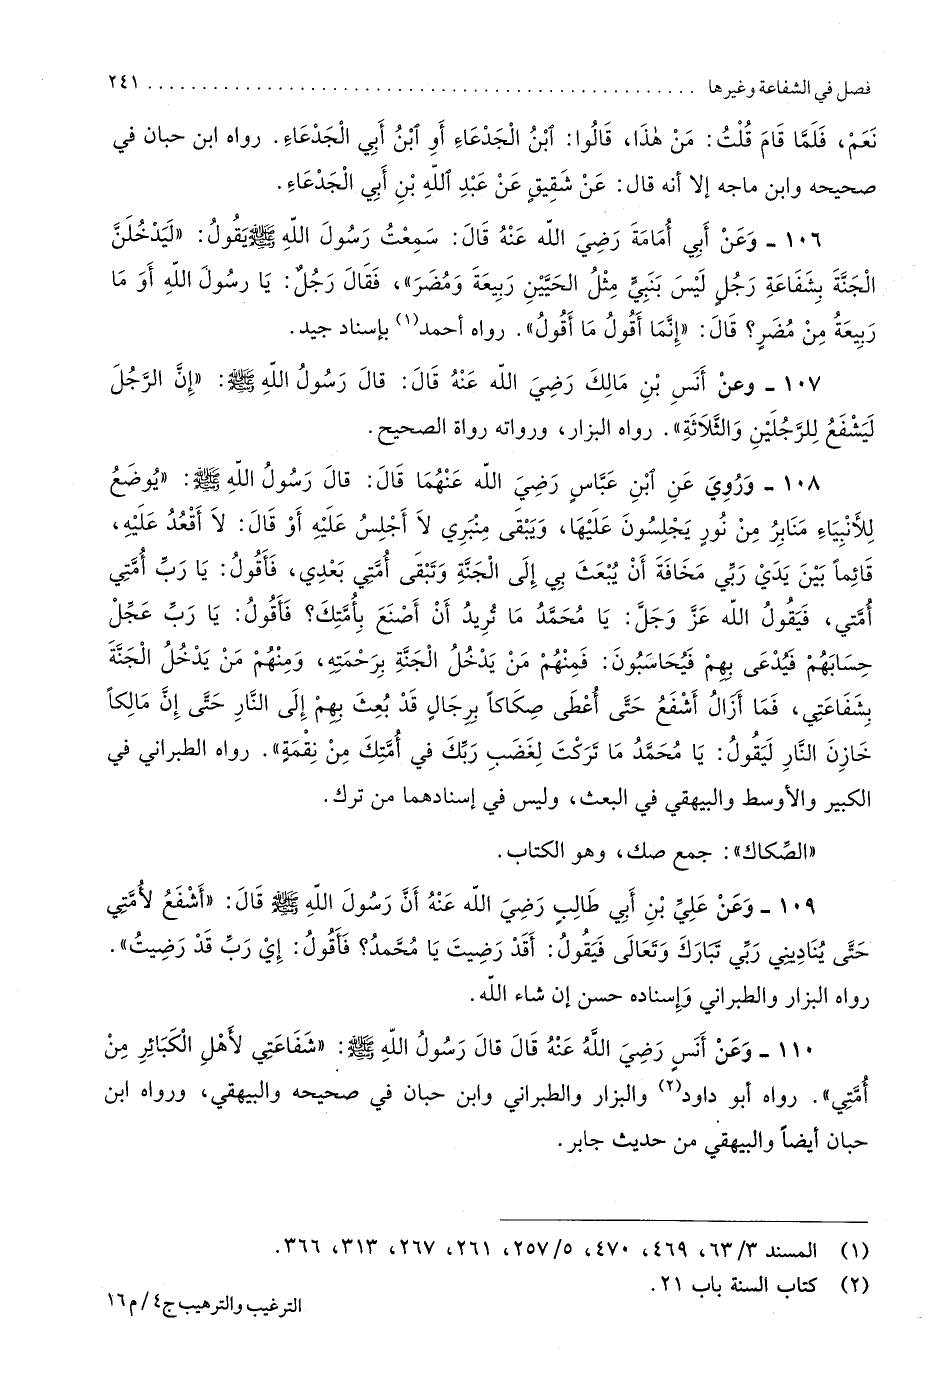 فصل في الشفاعة وغيرها ............................................ ٢٤١
نَعَمْ، فَلَمَّا قَامَ قُلْتُ: مَنْ هٰذَا، قَالُوا: ٱبْنُ الْجَدْعَاءِ أَوِ ٱبْنُ أَبِي الْجَدْعَاءِ. رواه ابن حبان في
صحيحه وابن ماجه إلا أنه قال: عَنْ شَقِيقٍ عَنْ عَبْدِ ٱللّهِ بْنِ أَبِي الْجَدْعَاءِ.
١٠٦ ـ وَعَنْ أَبِي أُمَامَةَ رَضِيَ الله عَنْهُ قَالَ: سَمِعْتُ رَسُولَ اللّهِ ﷺ يَقُولُ: «لَيَدْخُلَنَّ
الْجَنَّةَ بِشَفَاعَةِ رَجُلٍ لَيْسَ بَنَبِيٍّ مِثْلُ الحَيَّيْنِ رَبِيعَةَ وَمُضَرَ»، فَقَالَ رَجُلٌ: يَا رسُولَ اللّهِ أَوَ مَا
رَبِيعَةُ مِنْ مُضَرٍ؟ قَالَ: «إِنَّمَا أَقُولُ مَا أَقُولُ». رواه أحمد(١) بإسناد جيد.
١٠٧ ـ وعنْ أَنَسِ بْنِ مَالِكَ رَضِيَ الله عَنْهُ قَالَ: قالَ رَسُولُ اللّهِ ﷺ: «إِنَّ الرَّجُلَ
لَيَشْفَعُ لِلرَّجُلَيْنِ وَالثَّلَاثَةِ». رواه البزار، ورواته رواة الصحيح.
١٠٨ ـ وَرُوِيَ عَنِ ٱبْنِ عَبَّاسٍ رَضِيَ الله عَنْهُمَا قَالَ: قالَ رَسُولُ اللّهِ ﷺ: «يُوضَعُ
لِلأَنْبِيَاءِ مَنَابِرُ مِنْ نُورٍ يَجْلِسُونَ عَلَيْهَا، وَيَبْقَى مِنْبَرِي لاَ أَجْلِسُ عَلَيْهِ أَوْ قَالَ: لاَ أَقْعُدُ عَلَيْهِ،
قَائِماً بَيْنَ يَدَيْ رَبِّي مَخَافَةَ أَنْ يُبْعَثَ بِي إِلَى الْجَنَّةِ وَتَبْقَى أُمَّتِي بَعْدِي، فَأَقُولُ: يَا رَبِّ أُمَّتِي
أُمَّتي، فَيَقُولُ الله عَزَّ وَجَلَّ: يَا مُحَمَّدُ مَا تُرِيدُ أَنْ أَصْنَعَ بِأُمَّتِكَ؟ فَأَقُولُ: يَا رَبِّ عَجِّلْ
حِسَابَهُمْ فَيُدْعَى بِهِمْ فَيُحَاسَبُونَ: فَمِنْهُمْ مَنْ يَدْخُلُ الْجَنَّةِ بِرَحْمَتِهِ، وَمِنْهُمْ مَنْ يَدْخُلُ الْجَنَّةَ
بِشَفَاعَتِي، فَمَا أَزَالُ أَشْفَعُ حَتَّى أُعْطَى صِكَاكاً بِرِجَالٍ قَدْ بُعِثَ بِهِمْ إِلَى النَّارِ حَتَّى إِنَّ مَالِكاً
خَازِنَ النَّارِ لَيَقُولُ: يَا مُحَمَّدُ مَا تَرَكْتَ لِغَضَبِ رَبِّكَ في أُمَّتِكَ مِنْ نِقْمَةٍ». رواه الطبراني في
الكبير والأوسط والبيهقي في البعث، وليس في إسنادهما من ترك.
«الصِّكاك»: جمع صك، وهو الكتاب.
١٠٩ ـ وَعَنْ عَلِيِّ بْنِ أَبي طَالِبٍ رَضِيَ الله عَنْهُ أَنَّ رَسُولَ اللّهِ ﷺ قَالَ: «أَشْفَعُ لأُمَّتِي
حَتَّى يُنَادِيني رَبِّي تَبَارَكَ وَتَعَالَى فَيَقُولُ: أَقَدْ رَضِيتَ يَا مُحَّمدُ؟ فَأَقُولُ: إِيْ رَبِّ قَدْ رَضِيتُ».
رواه البزار والطبراني وَإِسناده حسن إن شاء اللّه.
١١٠ ـ وَعَنْ أَنَسٍ رَضِيَ اللَّهُ عَنْهُ قَالَ قَالَ رَسُولُ اللّهِ ﷺ: «شَفَاعَتِي لأَهْلِ الْكَبَائِرِ مِنْ
أُمَّتِي». رواه أبو داود(٢) والبزار والطبراني وابن حبان في صحيحه والبيهقي، ورواه ابن
حبان أيضاً والبيهقي من حديث جابر.
(١) المسند ٦٣/٣، ٤٦٩، ٤٧٠، ٢٥٧/٥، ٢٦١، ٢٦٧، ٣١٣، ٣٦٦.
(٢) كتاب السنة باب ٢١.
الترغيب والترهيب ج٤ / م١٦